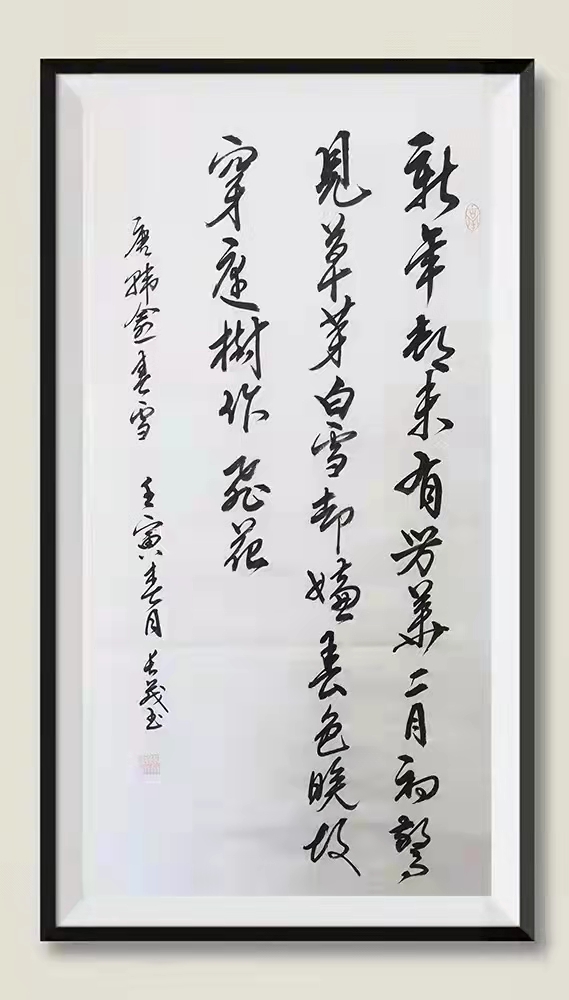 新年都未有芳華二月初驚
見草芽白雪却嫌春色晚故
穿庭樹作飛花
唐韓愈春雪 壬寅春月 长茂书